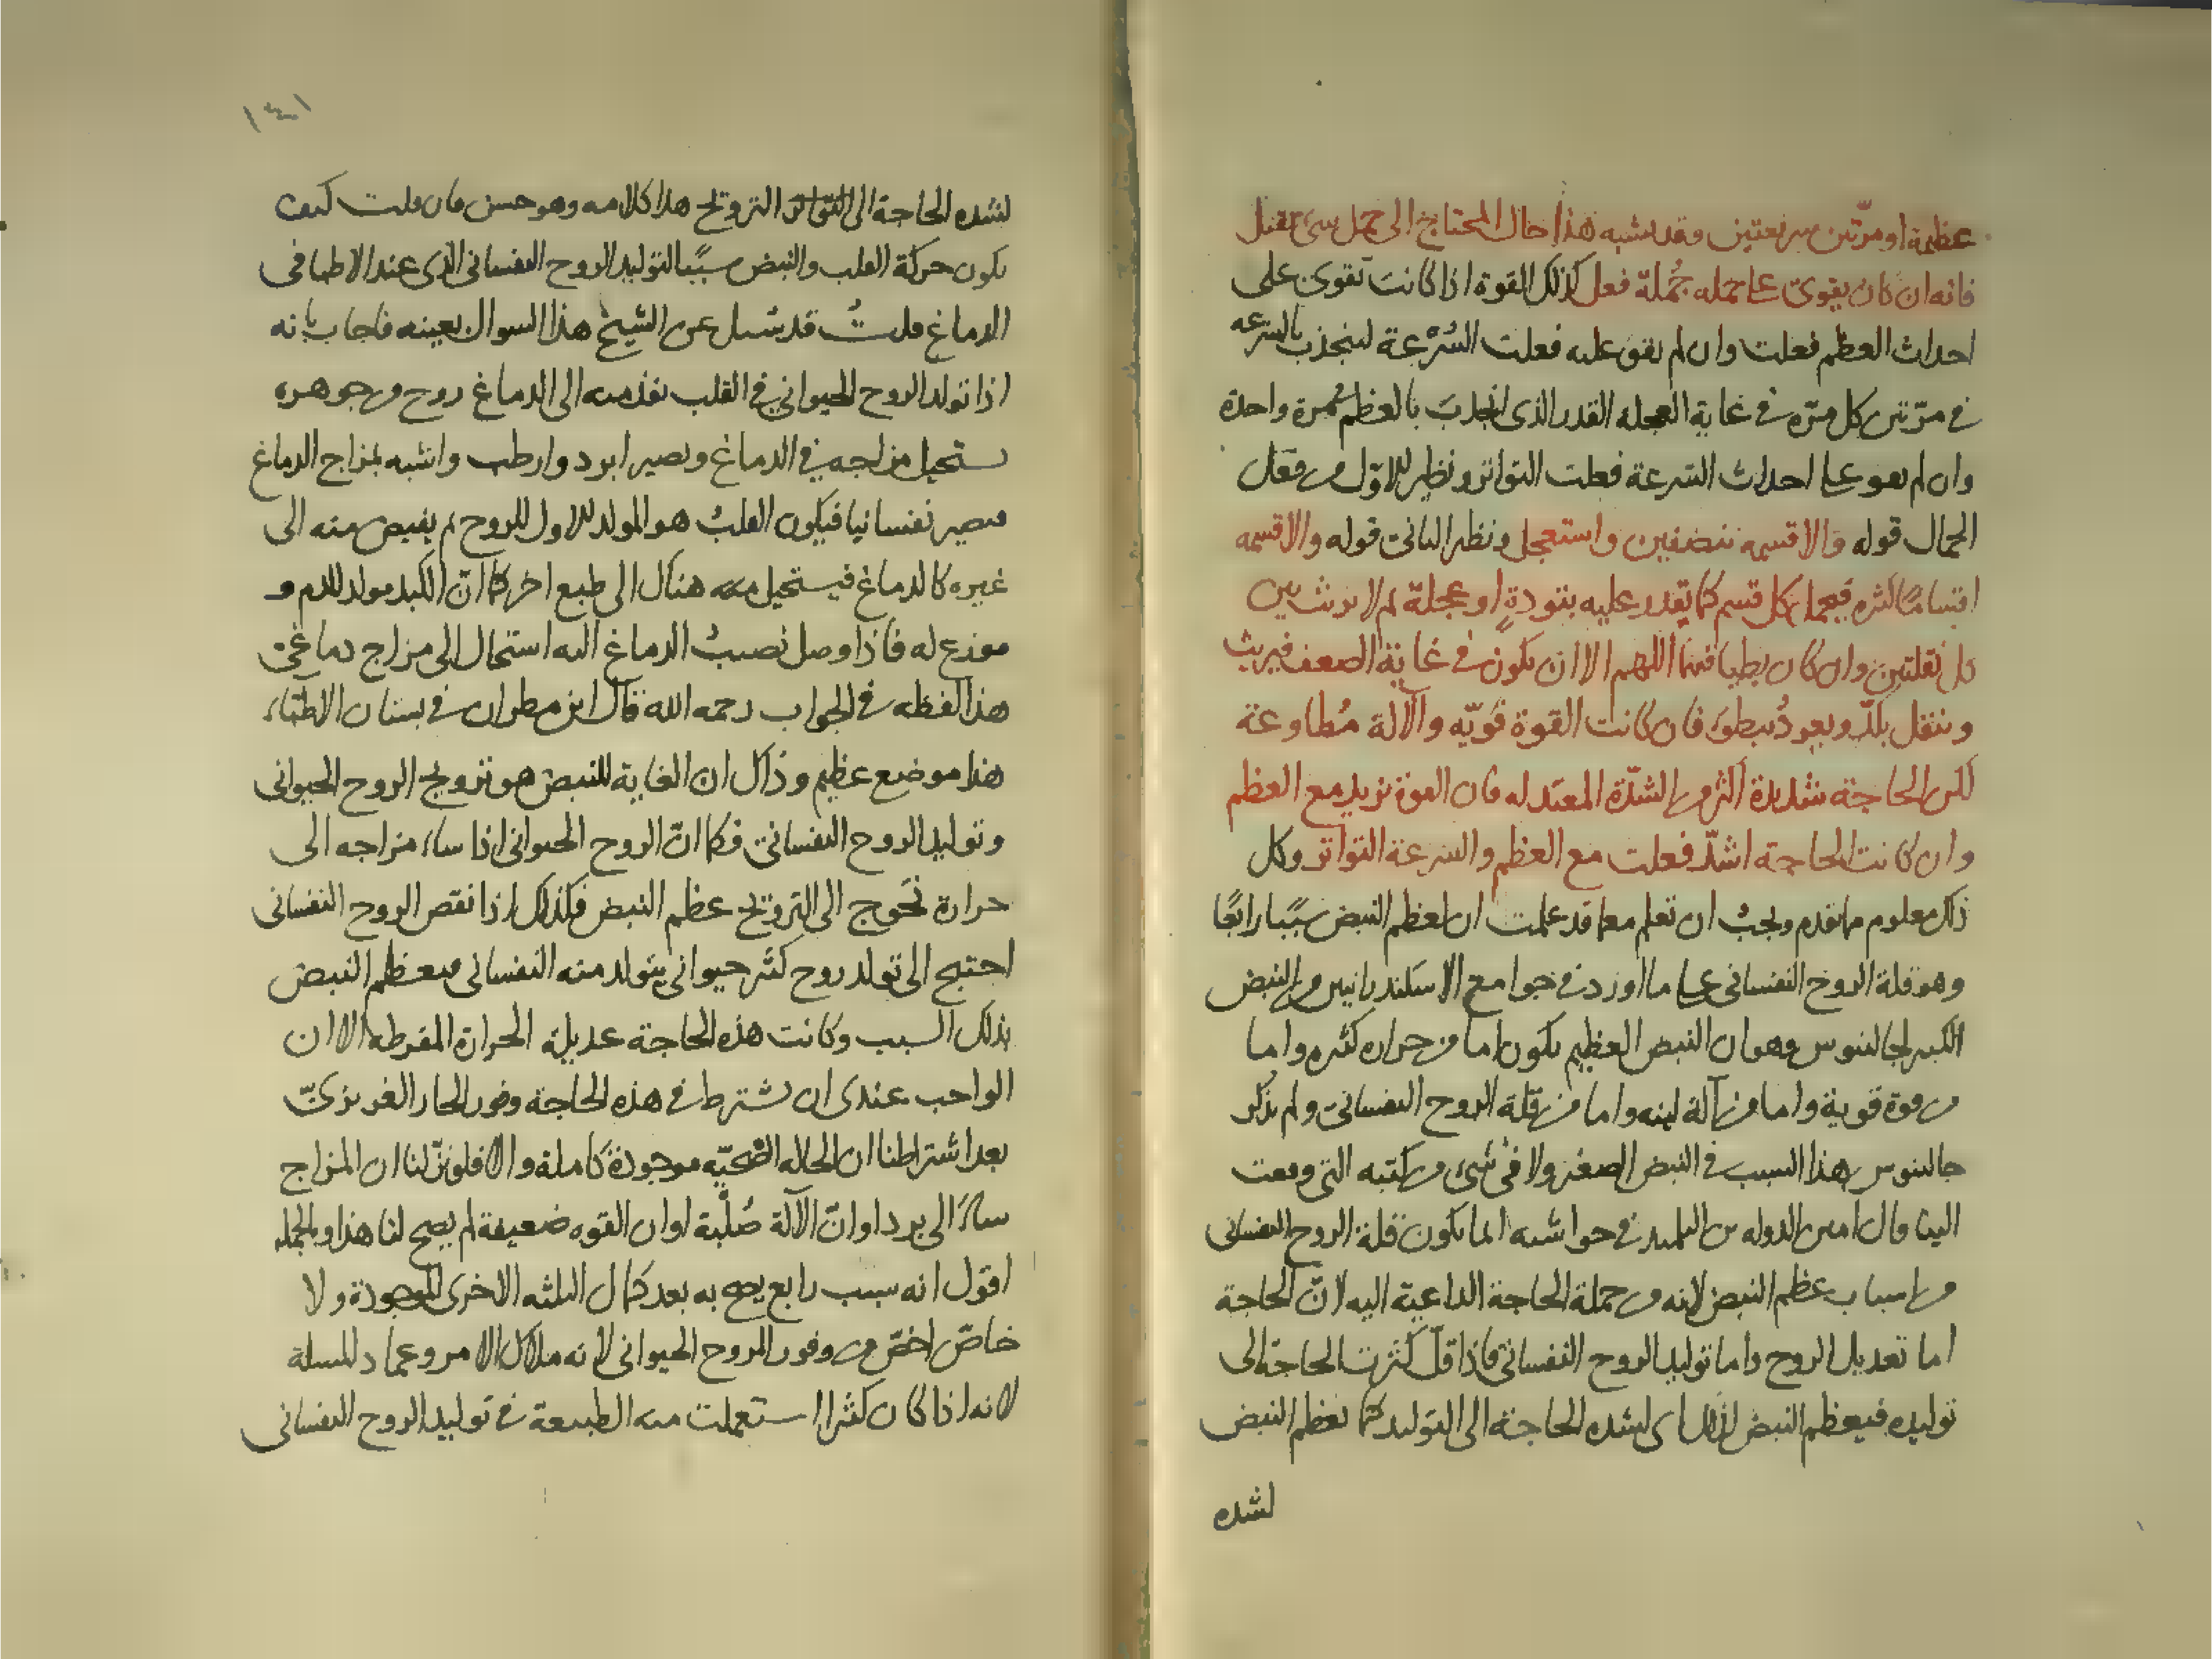 عظيمة او مرّتين سريعتين وقد يشبه هذا حال المحتاج الى حمل شئ ثقيل
فانه ان كان يقوى على حمله جُملةً فعل كذلك القوة اذا كانت تقوى على
احداث العظم فعلت وان لم تقو عليه فعلت السُّرعة لينجذب بالسرعه
في مرّتين كل مرّه في غاية العجله القدر الذى انجذب بالعظم بمرة واحدة
وان لم تقو على احداث السّرعة فعلت التواتر ونظير للاوّل من فعل
الحمال قوله والا قسمه بنصفين واستعجل ونظير الثانى قوله والا قسمه
اقسامًا كثيره فيحمل كل قسم كما يقدر عليه بتودةٍ او عجلة ثم لا يريث بين
كل نقلتين وان كان بطيا فيهما اللهم الا ان يكون في غاية الضعف فيريث
وينقل بكدّ ويعود ببطوء فان كانت القوة قويّه والآلة مُطاوعة
لكن الحاجة شديدة اكثر من الشدّة المعتدله فان القوة تزيد مع العظم
وان كانت الحاجة اشدّ فعلت مع العظم والسرعة التواتر وكل
ذلك معلوم مما تقدم ويجب ان تعلم مما قد علمت ان لعظم النبض سببًا رابعًا
وهو قلة الروح النفسانى على ما اورد في جوامع الاسكندرانيين من النبض
الكبير لجالينوس وهو ان النبض العظيم يكون اما من حراره كثيره واما
من قوة قوية واما من آلة لينه واما من قلة الروح النفسانى ولم يذكر
جالينوس هذا السبب في النبض الصغير ولا في شئ من كتبه التى وقعت
الينا وقال امين الدوله بن التلميد في حواشيه انما يكون قلة الروح النفسانى
من اسباب عظم النبض لانه من جملة الحاجة الداعية اليه لانّ الحاجة
اما تعديل الروح واما توليد الروح النفسانى فاذا قلّ كثرت الحاجة الى
توليده فيعظم النبض لذلك اى لشده الحاجة الى التوليد كما يعظم النبض
لشده
١٤١
لشده الحاجة الى التواتر الترويح هذا كلامه وهو حسن فان قلت كيف
يكون حركة القلب والنبض سببًا لتوليد الروح النفسانى الذى عند الاطبا في
الدماغ قلتُ قد سُئل عن الشيخ هذا السوال بعينه فاجاب بانه
اذا تولد الروح الحيوانى في القلب نفذ منه الى الدماغ روح من جوهره
يستحيل مزاجه في الدماغ ويصير ابرد وارطب واشبه بمزاج الدماغ
فيصير نفسانيا فيكون القلبُ هو المولد للاول للروح ثم يفيض منه الى
غيره كالدماغ فيستحيل منه هناك الى طبع اخر كما انّ الكبد مولد للدم و
موزع له فاذا وصل نصيبُ الدماغ اليه استحال الى مزاج دماغى
هذا لفظه في الجواب رحمه الله قال ابن مطران في بستان الاطبّاء
هذا موضع عظيم وذاك ان الغاية للنبض هو ترويح الروح الحيوانى
وتوليد الروح النفسانى فكما انّ الروح الحيوانى اذا ساء مزاجه الى
حرارة تحوج الى الترويح عظم النبض فكذلك اذا نقص الروح النفسانى
احتيج الى تولد روح كثير حيوانى يتولد منه النفسانى فيعظم النبض
بذلك السبب وكانت هذه الحاجة عديلة الحرارة المفرطه الا ان
الواجب عندى ان يشترط في هذه الحاجة وفور الحار الغريزىّ
بعد اشتراطنا ان الحاله الصحيّه موجودة كاملة والا فلو نزّلنا ان المزاج
ساءَ الى برد او انّ الآلة صُلبة او ان القوه ضعيفة لم يصح لنا هذا وبالجمله
اقول انه سبب رابع يصح به بعد كمال الثلثه الاخرى الموجودة ولا
خاصّ اخصّ من وفور الروح الحيوانى لانه ملاك الامر وعماد المسلة
لانه اذا كان كثيرا استعملت منه الطبيعة في توليد الروح النفسانى